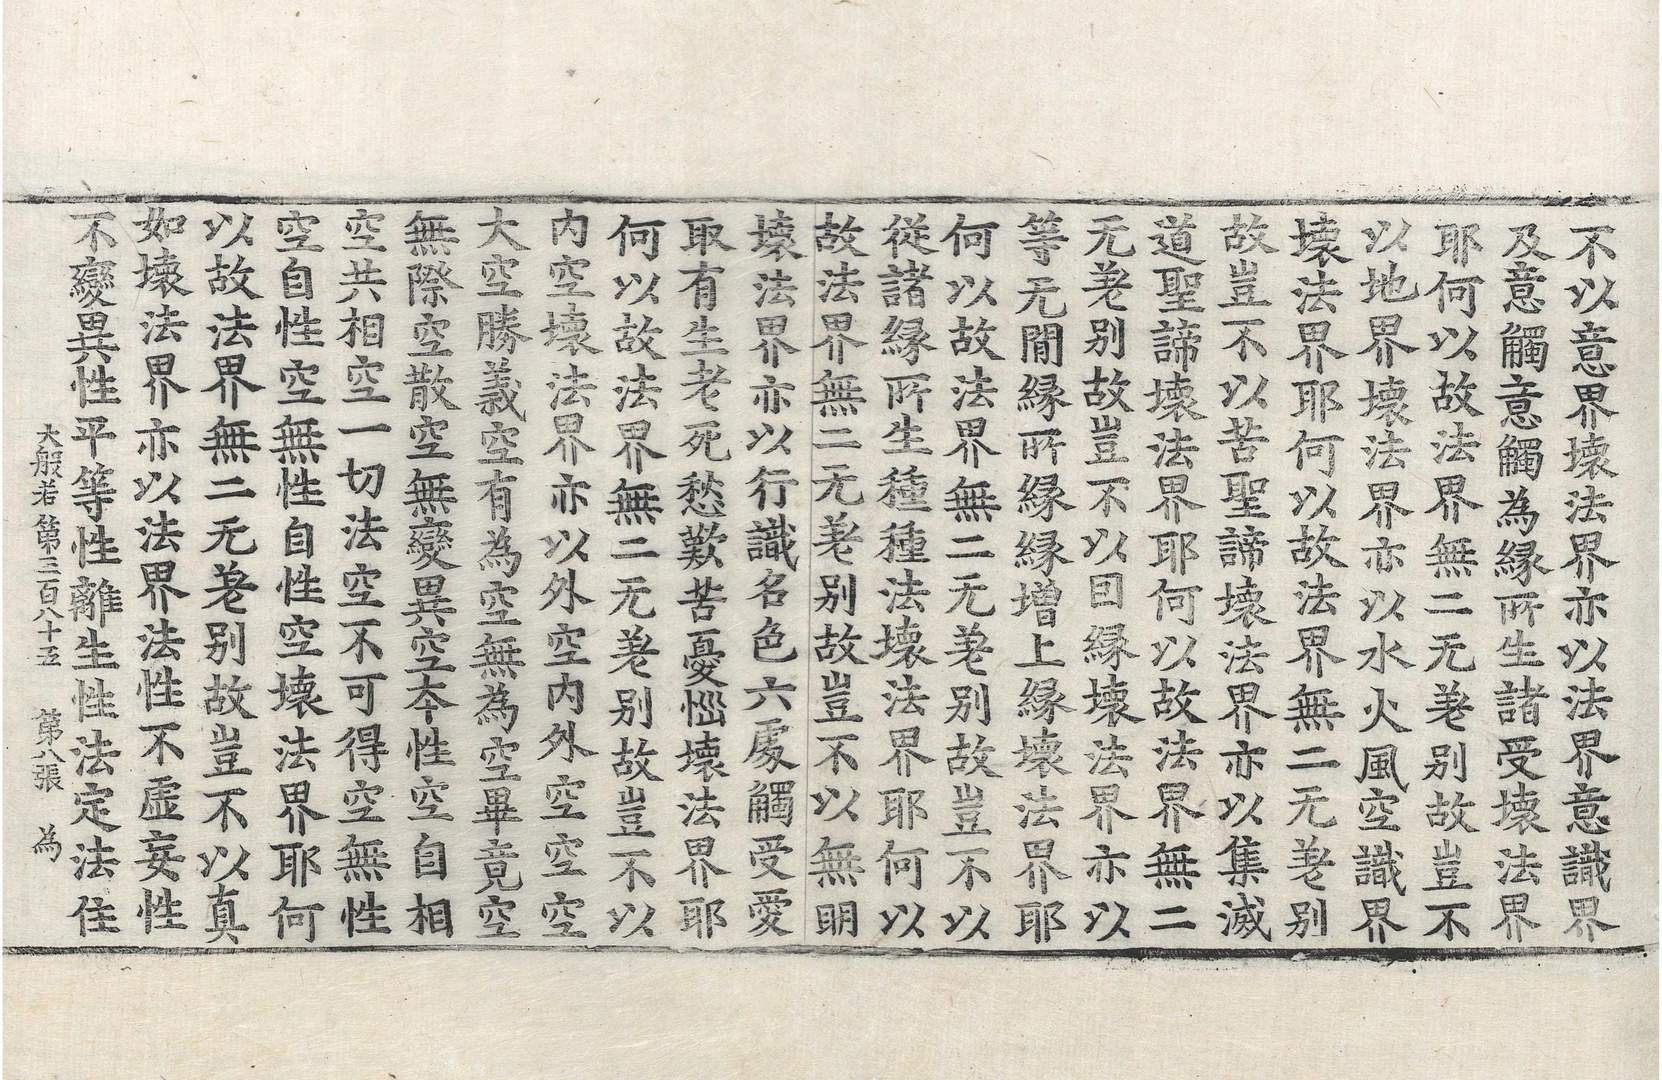 不以意界壞法界亦以法界意識界
及意觸意觸為縁所生諸受壞法界
耶何以故法界無二无差别故豈不
以地界壞法界亦以水火風空識界
壞法界耶何以故法界無二无差别
故豈不以苦聖諦壞法界亦以集滅
道聖諦壞法界耶何以故法界無二
无差别故豈不以因縁壞法界亦以
等无間縁所縁縁增上縁壞法界耶
何以故法界無二无差别故豈不以
從諸縁所生種種法壞法界耶何以
故法界無二无差别故豈不以無明
壞法界亦以行識名色六處觸受愛
取有生老死愁歎苦憂惱壞法界耶
何以故法界無二无差别故豈不以
内空壞法界亦以外空内外空空空
大空勝義空有為空無為空畢竟空
無際空散空無變異空本性空自相
空共相空一切法空不可得空無性
空自性空無性自性空壞法界耶何
以故法界無二无差别故豈不以真
如壞法界亦以法界法性不虛妄性
不變異性平等性離生性法定法住
大般若第三百八十五 第八張 為